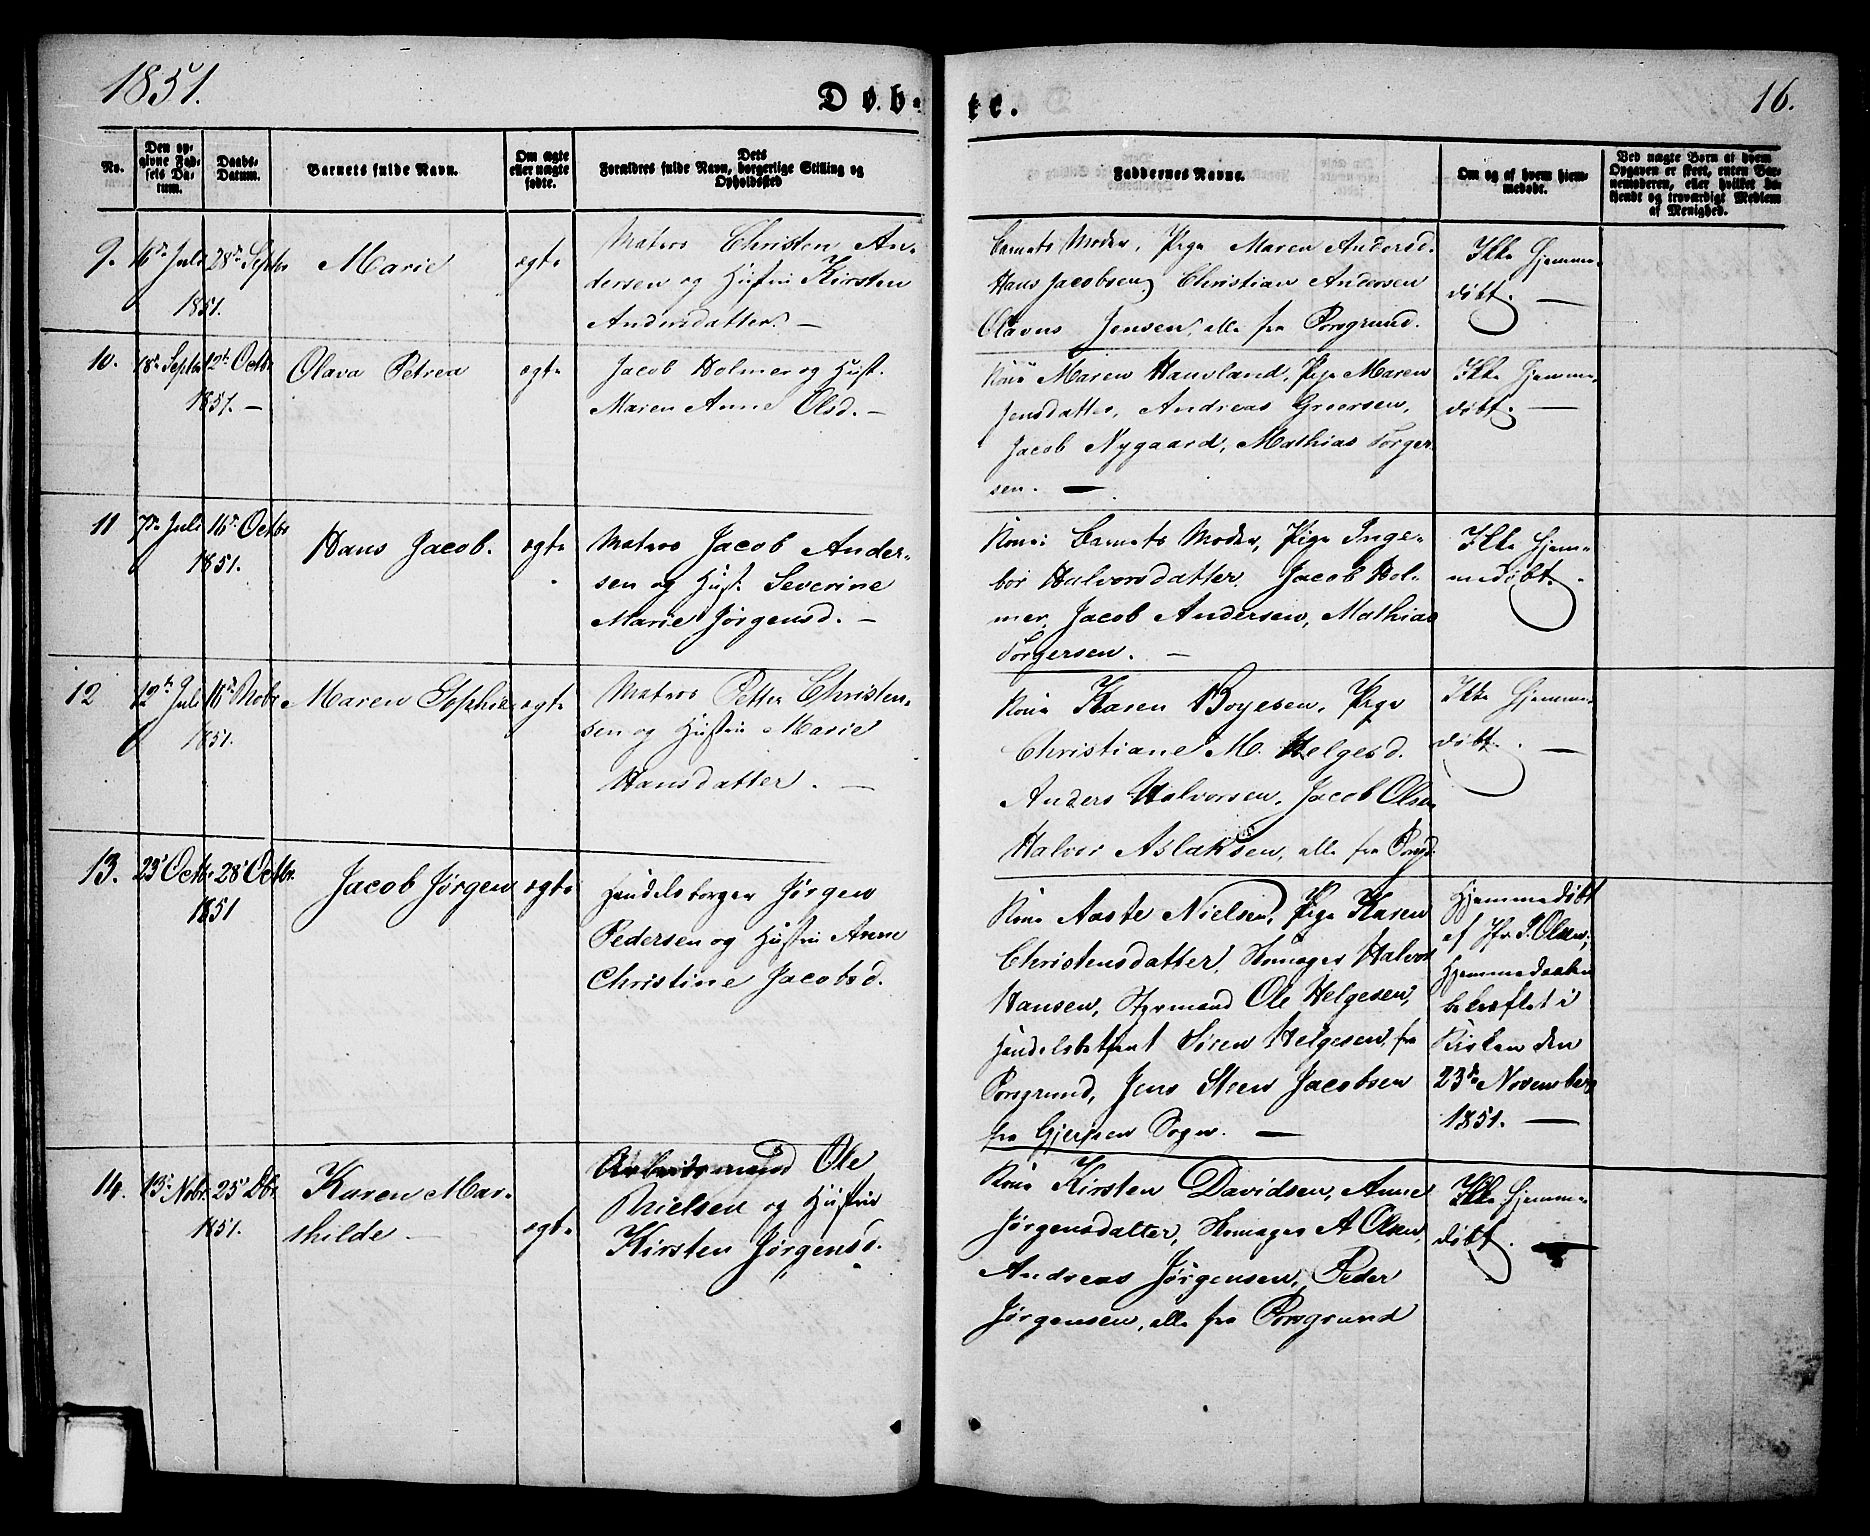 1851.
Døb-
te.
16.
No.
Den op-
givne Fød-
sels Da-
tum.
Daabs-
Datum.
Barnets fulde Navn.
Om ægte
eller uægte
fødte.
Dets
Forældres fulde Navn, borgerlige Stilling og
Opholdssted
Faddernes Navne.
Om og af hvem hjem-
medøbt.
Ved uægte Børn af hvem
Opgaven er skeet, enten Bar-
nemoderen, eller hvilket be-
kjendt og troværdigt Medlem
af Menighed.
9. 16de Juli 28de Septbr
1851.
Marie
ægte
Matros Christen An-
dersen og Hustru Kirsten
Andersdatter. —
Barnets Moder, Pige Maren Andersd.
Hans Jacobsen, Christian Andersen
Olavus Jensen, alle fra Porsgrund.
Ikke Hjemme-
døbt. —
10. 18de Septbr 12te Octbr
1851. —
Olava Petrea
ægte
Jacob Holmer og Hust.
Maren Anne Olsd. —
Kone Maren Hauvland, Pige Maren
Jensdatter, Andreas Greersen,
Jacob Nygaard, Mathias Torger-
sen. —
Ikke Hjemme-
døbt. —
11 7de Juli 16de Octbr
1851.
Hans Jacob.
ægte
Matros Jacob Ander-
sen og Hust. Severine
Marie Jørgensd. —
Kone: Barnets Moder, Pige Inge-
bor Halvorsdatter. Jacob Hol-
mer, Jacob Andersen, Mathias
Torgersen. —
Ikke Hjem-
medøbt. -
12 12te Juli 16de Nobr
1851.
Maren Sophie
ægte
Matros Petter Christen-
sen og Hustru Marie
Hansdatter. —
Kone Karen Boyesen, Pige
Christiane M. Helgesd.
Anders Halvorsen, Jacob Olsen
Halvor Aslaksen, alle fra Porsgd.
Ikke Hjemme-
døbt. —
13. 23' Octbr. 28' Octbr.
1851
Jacob Jørgen
ægte
Handelsborger Jørgen
Pedersen og Hustru Anne
Christine Jacobsd.
Kone Aaste Nielsen, Pige Karen
Christensdatter, Skomager Halvor
Hansen, Styrmand Ole Helgesen,
Handelsbetjent Søren Helgesen, fra
Porsgrund, Jens Steen Jacobsen
fra Gjerpen Sogn. —
Hjemmedøbt
af Hr. P. Olsen,
Hjemmedaaben
bekræftet i
Kirken den
23de November
1851. —
14. 13' Nobr. 25' Dbr.
1851.
Karen Mar-
thilde —
ægte
Arbeidsmand Ole
Nielsen og Hustru
Kirsten Jørgensd.
Kone Kirsten Davidsen, Anne
Jørgensdatter, Skomager A Olsen,
Andreas Jørgensen, Peder
Jørgensen, alle fra Porsgrund
Ikke Hjemme-
døbt. —